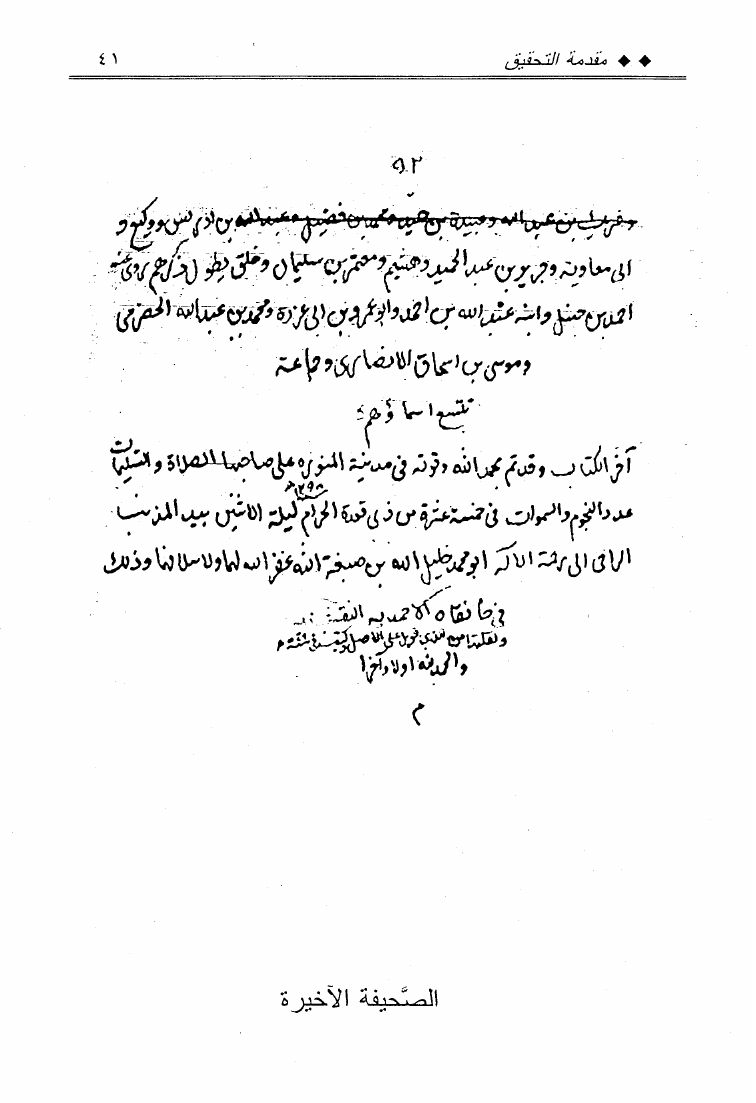 ◆ ◆ مقدمة التحقيق ٤١
٥٢
عبد الله وعبيدة بن حميد ومحمد بن فضيل وعبد الله بن ادريس ووكيع و
ابى معاوية وجرير بن عبد الحميد وهشيم ومعتمر بن سليمان وخلق يطول ذكرهم روى عنه
احمد بن حنبل وابنه عبد الله بن احمد وابو عمرو بن ابى غرزة ومحمد بن عبد الله الحضرمى
وموسى بن اسحاق الانصارى وجماعة
اسماؤهم
آخر الكتاب وقد تم بحمد الله وقوته فى مدينة المنوره على صاحبها الصلاة والتسليمات
١٢٩٨
عدد النجوم والسموات فى خمسة عشرة من ذى قعدة الحرام ليلة الاثنين بيد المذنب
الراجى الى رحمة الاله ابو محمد خليل الله بن صبغة الله غفر الله لهما ولاسلافهما وذلك
فى خانقاه الاحمديه
على الاصل
والحمد لله اولا وآخرا
م
الصَّحيفة الأخيرة